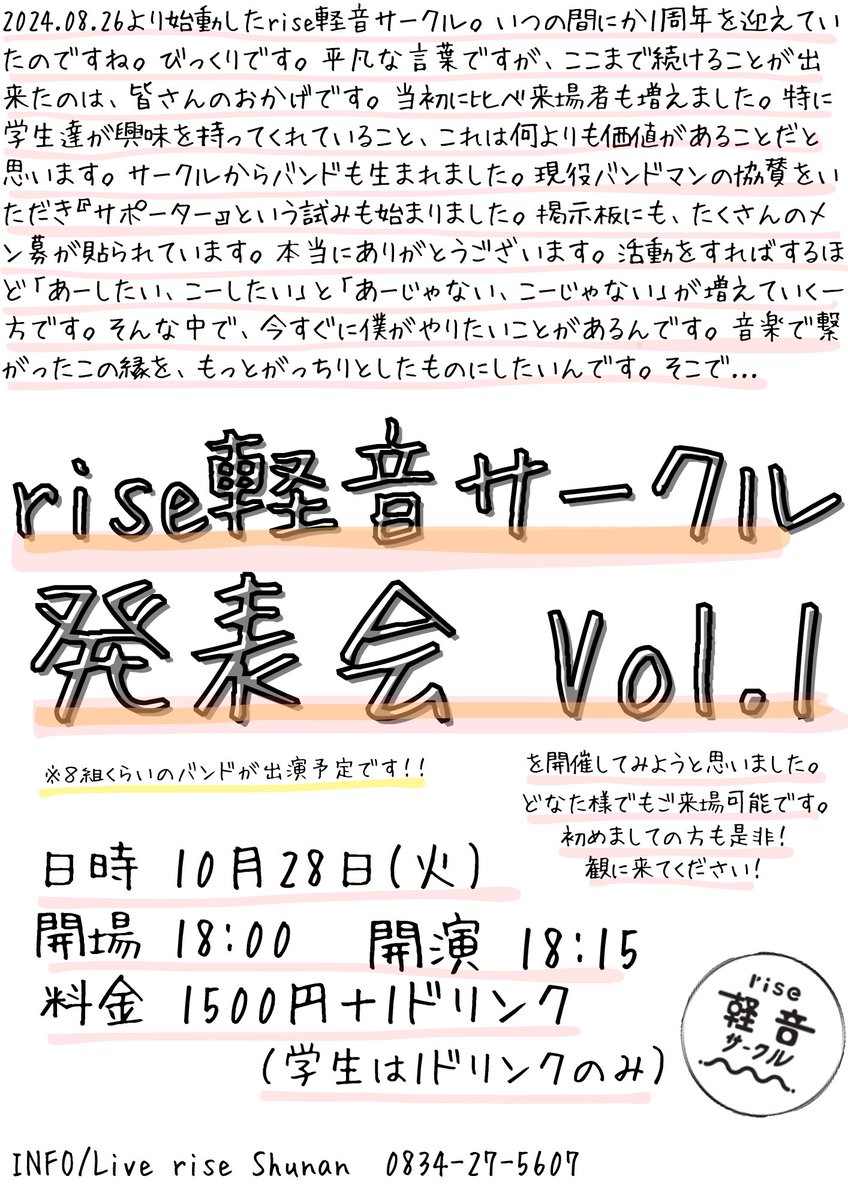 2024.08.26より始動したrise軽音サークル。いつの間にか1周年を迎えてい
たのですね。びっくりです。平凡な言葉ですが、ここまで続けることが出
来たのは、皆さんのおかげです。当初に比べ来場者も増えました。特に
学生達が興味を持ってくれていること、これは何よりも価値があることだと
思います。サークルからバンドも生まれました。現役バンドマンの協賛をい
ただき『サポーター』という試みも始まりました。掲示板にも、たくさんのメ
ン募が貼られています。本当にありがとうございます。活動をすればするほ
ど「あーしたい、こーしたい」と「あーじゃない、こーじゃない」が増えていく一
方です。そんな中で、今すぐに僕がやりたいことがあるんです。音楽で繋
がったこの縁を、もっとがっちりとしたものにしたいんです。そこで...
rise軽音サークル
発表会 Vol.1
※8組くらいのバンドが出演予定です!!
を開催してみようと思いました。
どなた様でもご来場可能です。
初めましての方も是非!
観に来てください!
日時 10月28日(火)
開場 18:00 開演 18:15
料金 1500円+1ドリンク
(学生は1ドリンクのみ)
rise
軽音
サークル
INFO/Live rise Shunan 0834-27-5607